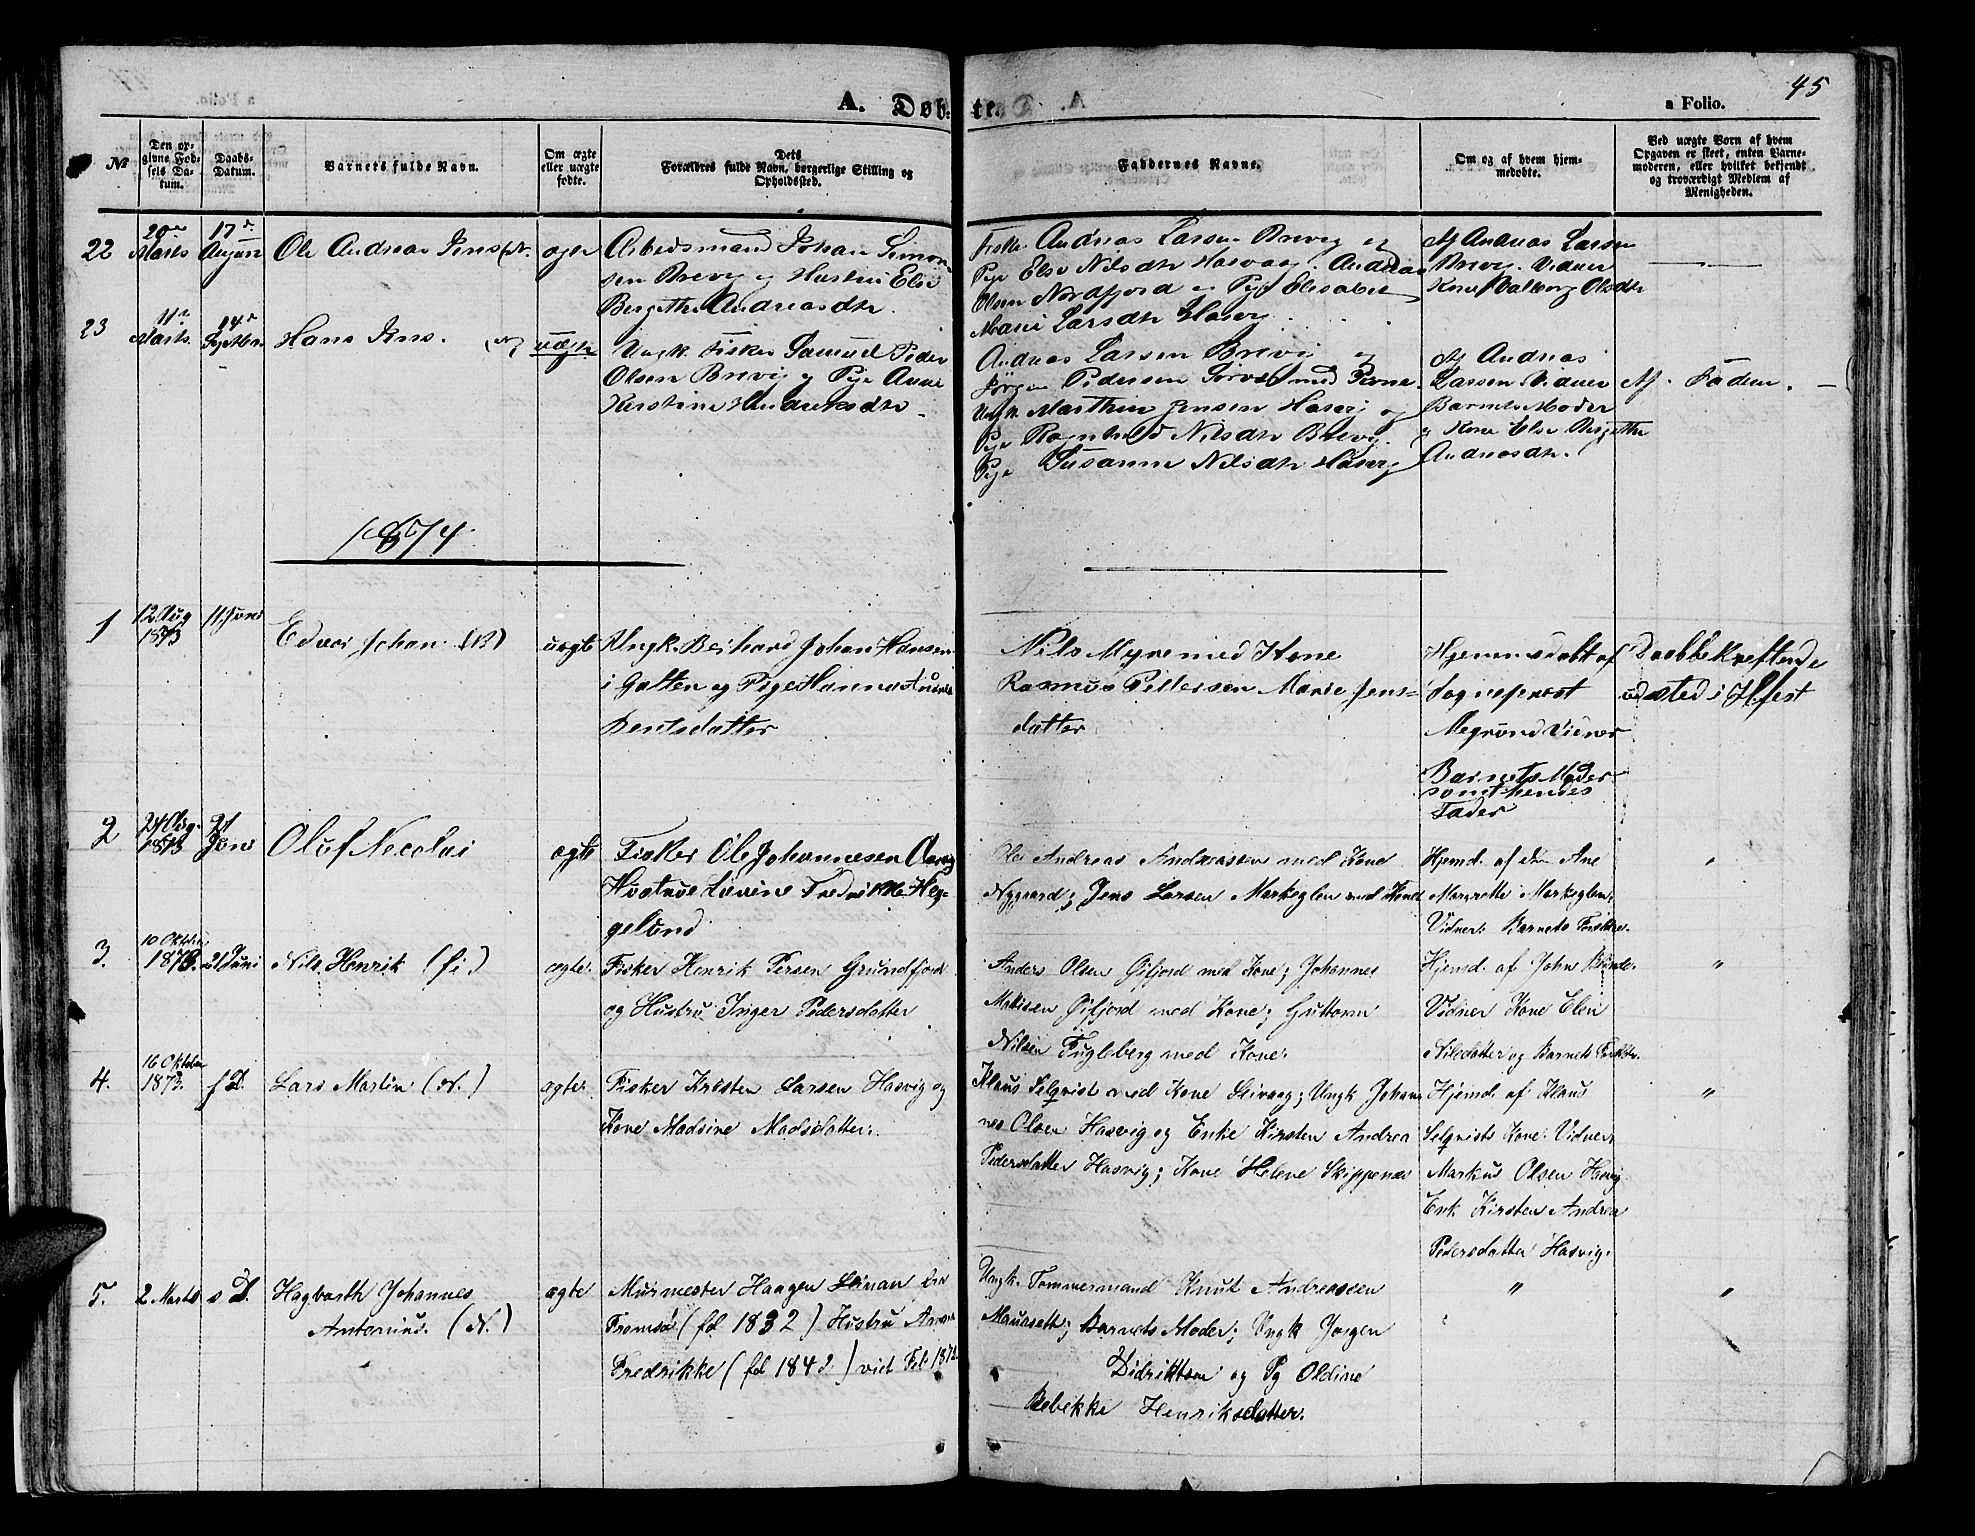 45
A. Døb- te.
a Folio.
№
Den opgivne Fødsels Datum.
Daabs-Datum.
Barnets fulde Navn.
Om ægte eller uægte fødte.
Dets Forældres fulde Navn, borgerlige Stilling og Opholdssted.
Faddernes Navne.
Om og af hvem hjemmedøbte.
Ved uægte Børn af hvem Opgaven er skeet, enten Barnemoderen, eller hvilket bekjendt og troværdigt Medlem af Menigheden.
22 20de Marts 17d August Ole Andreas Jens (N. ægte
Arbeidsmand Johan Simon-
sen Brevig og Hustru Else
Bergethe Andreasdtr.
Andreas Larsen Brevig og
Pige Else Nilsdtr Hasvaag. Andreas
Olsen Nordfjord og Pige Elisabet
Marie Larsdtr Hasvig
Af Andreas Larsen
Brevig. Vidner
Kone Valborg Olsdtr
23 11te Marts. 14d Septbr Hans Jens. (N) uægte
Ungk. Fisker Samuel Peder
Olsen Brevig og Pige Anne
Kirstine Hendriksdtr
Andreas Larsen Brevig og
Jørgen Pedersen Sørvær med Kone.
Ungk. Marthin Jensen Hasvig og
Pige Ragnhild Nilsdtr Brevig.
Pige Susanne Nilsdtr Hasvig
Af Andreas
Larsen Vidner
Barnets Moder
og Kone Else Bergethe
Andreasdtr.
Af Faderen.
1874
1 12 Aug 1873 11 Juni Edvar Johan (N) uægte
Ungk. Berhard Johan Hansen
i Galten og Pige Hanna
Bentsdatter
Nils Myre med Kone
Rasmus Pettersen Marie Jens-
datter
Hjemmedøbt af
Sogneprest
Vidner
Barnets Moder
samt hendes
Fader
Daabbekreftende
udsted i Hfest
2 24 Aug. 1873 21 Juni Oluf Necolai ægte
Fisker Ole Johannesen
Hustrue Lovine Fredrikke Heg-
gelund
Ole Andreas Andreassen med Kone
Nygaard; Jens Larsen Markeglen med Kone
Hjemd. af den Ane
Margrethe Markeglen;
Vidner: Barnets Forældre.
"
3. 10 Oktober 1873. 21 Juni Nils Henrik (fi.) ægte.
Fisker Henrik Persen Grundfjord
og Hustru Inger Pedersdatter
Anders Olsen Øifjord med Kone; Johannes
Mathisen Øifjord med Kone; Guttorm
Nilsen Fugleberg med Kone.
Hjemd. af John
Vidner Kone Elen
Nilsdatter og Barnets Forældre.
"
4. 16 Oktober 1873. s D. Lars Martin (N.) ægte.
Fisker Kresten Larsen Hasvig og
Kone Madsine Madsdatter.
Klaus Selqvist med Kone; Ungk Johan-
nes Olsen Hasvig og Enke Kirsten Andrea
Pedersdatter Hasvig; Kone Helene Skippernæs
Hjemd. af Klaus
Selqvists Kone. Vidner:
Markus Olsen Hasvig
Enk. Kirsten Andrea
Pedersdatter Hasvig.
"
5. 2 Marts s D. Hagbarth Johannes
Antonius. (N.) ægte
Murmester Haagen fra
Tromsø (fd 1832) Hustru Anna
Fredrikke (fd 1842) viet Feb 1872.
Ungk. Tømmermand Knut Andreassen
Barnets Moder; Ungk Jørgen
Didriktsen og Pg Oldine
Rebekke Henriksdatter.
"
"